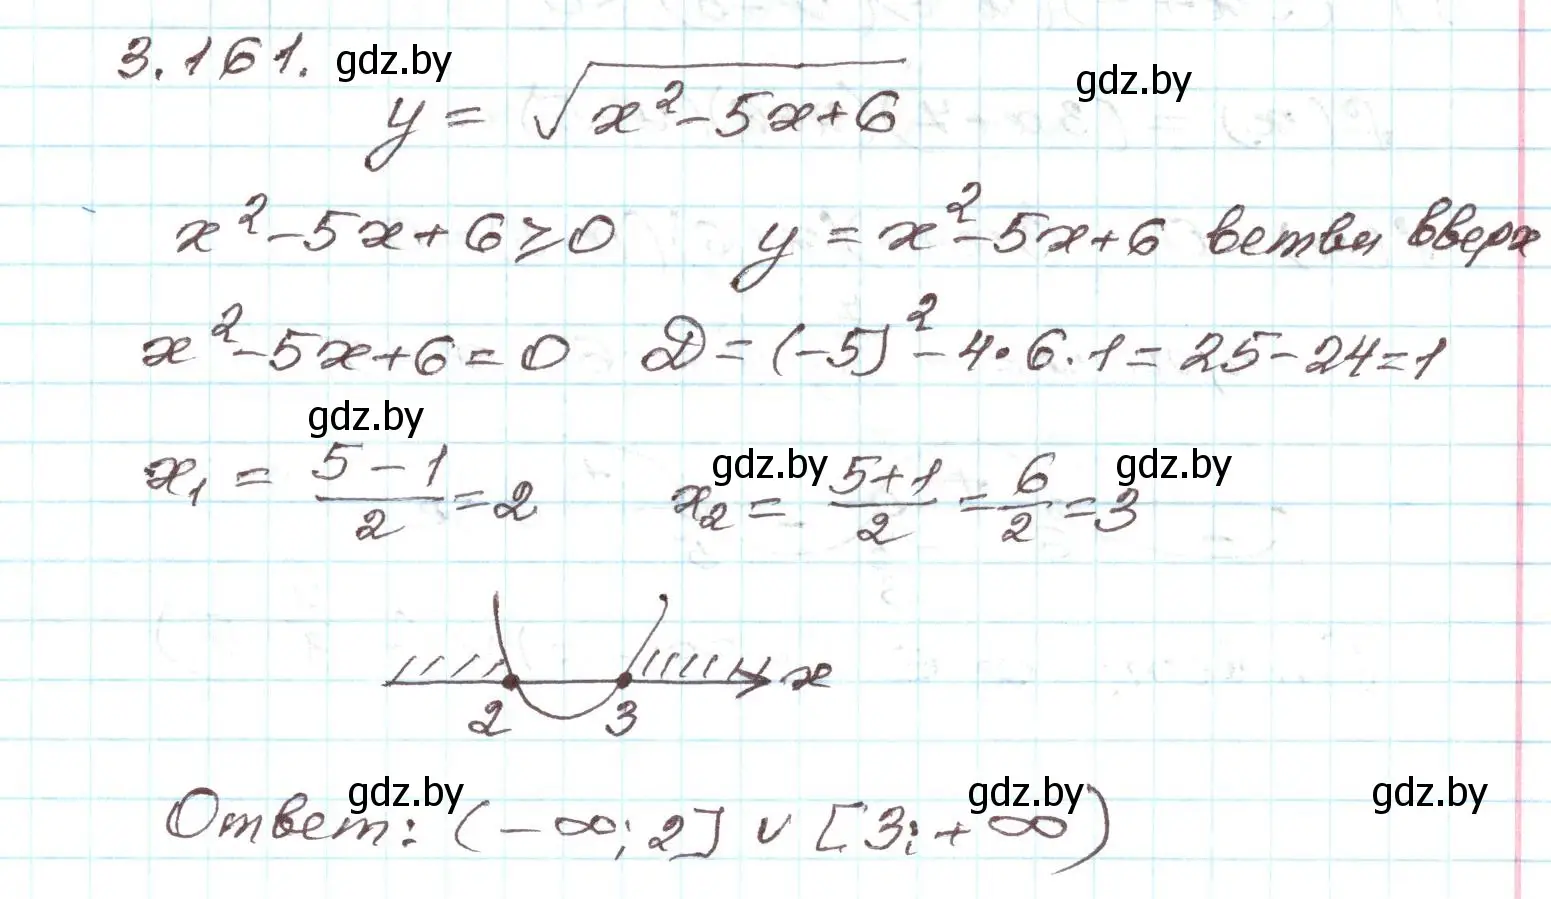 3.161. gdz.by gdz.by
y = √(x² - 5x + 6)
x² - 5x + 6 ≥ 0 y = x² - 5x + 6 ветви вверх
x² - 5x + 6 = 0 D = (-5)² - 4·6·1 = 25 - 24 = 1
gdz.by gdz.by gdz.by
x₁ = (5 - 1)/2 = 2 x₂ = (5+1)/2 = 6/2 = 3
x
2 3
gdz.by gdz.by gdz.by
Ответ: (-∞; 2] ∪ [3; +∞)